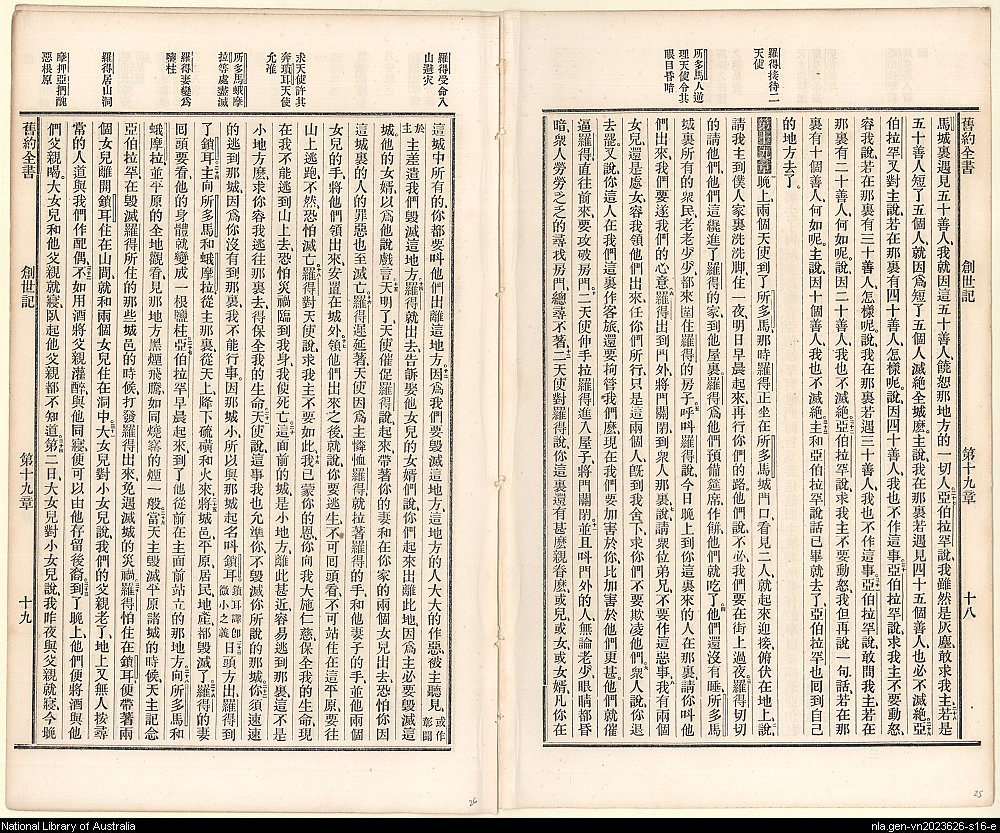 羅得接待二
天使
所多馬人逆
理天使令其
眼目昏暗
舊約全書 創世記 第十九章 十八
馬城裏遇見五十善人我就因這五十善人饒恕那地方的一切人亞伯拉罕說我雖然是灰塵敢求我主若是
五十善人短了五個人就因爲短了五個人滅絕全城麼主說我在那裏若遇見四十五個善人也必不滅絕亞
伯拉罕又對主說若在那裏有四十善人怎樣呢說因四十善人我也不作這事亞伯拉罕說求我主不要動怒
容我說若在那裏有三十善人怎樣呢說我在那裏若遇三十善人我也不作這事亞伯拉罕說敢問我主若在
那裏有二十善人何如呢說因二十善人我也不滅絕亞伯拉罕說求我主不要動怒我但再說一句話若在那
裏有十個善人何如呢主說因十個善人我也不滅絕主和亞伯拉罕說話已畢就去了亞伯拉罕也囘到自己
的地方去了
第十九章 晚上兩個天使到了所多馬那時羅得正坐在所多馬城門口看見二人就起來迎接俯伏在地上說
請我主到僕人家裏洗洗脚住一夜明日早晨起來再行你們的路他們說不必我們要在街上過夜羅得切切
的請他們他們這纔進了羅得的家到他屋裏羅得爲他們預備筵席作餅他們就吃了他們還沒有睡所多馬
城裏所有的衆民老老少少都來圍住羅得的房子呼叫羅得說今日晚上到你這裏來的人在那裏請你叫他
們出來我們要遂我們的心意羅得出到門外將門關閉到衆人那裏說請衆位弟兄不要作這惡事我有兩個
女兒還是處女容我領他們出來任你們所行只是這兩個人旣到我舍下求你們不要欺凌他們衆人說你退
去罷又說你這人在我們這裏作客旅還要拘管我們麼現在我們要加害於你比加害於他們更甚他們就催
逼羅得直往前來要攻破房門二天使伸手拉羅得進入屋子將門關閉並且叫門外的人無論老少眼睛都昏
暗衆人勞勞乏乏的尋找房門總尋不著二天使對羅得說你這裏還有甚麼親眷麼或兒或女或女婿凡你在
25
羅得受命入
山避火
求天使許其
奔瑣耳天使
允准
所多馬蛾摩
拉等處盡滅
羅得妻變爲
鹽柱
羅得居山洞
摩押亞捫醜
惡根原
這城中所有的你都要叫他們出離這地方因爲我們要毀滅這地方這地方的人大大的作惡被主聽見或作彰聞
於主主差遣我們毀滅這地方羅得就出去告訴娶他女兒的女婿們說你們起來出離此地因爲主必要毀滅這
城他的女婿以爲他說戲言天明了天使催促羅得說起來帶著你的妻和在你家的兩個女兒出去恐怕你因
這城裏衆人的罪惡也至滅亡羅得遲延著天使因爲主憐恤羅得就拉著羅得的手和他妻子的手並他兩個
女兒的手將他們領出來安置在城外領他們出來之後就說你要逃生不可囘頭看不可站住在這平原要往
山上逃跑不然恐怕滅亡羅得對天使說求我主不要如此我已蒙你的恩你向我大施仁慈保全我的生命現
在我不能逃到山上去恐怕災禍臨到我身我使死亡這面前的城是小地方離此甚近容易逃到那裏這不是
小地方麼求你容我逃往那裏去得保全我的生命天使說這事我也允準你不毀滅你所說的那城你須速速
的逃到那城因爲你沒有到那裏我不能行事因那城小所以與那城起名叫鎖耳鎖耳譯卽微小之義日頭方出羅得到
了鎖耳主向所多馬和蛾摩拉從主那裏從天上降下硫磺和火來將城邑平原居民地產都毀滅了羅得的妻
囘頭要看他的身體就變成一根鹽柱亞伯拉罕早晨起來到了他從前在主面前站立的那地方向所多馬和
蛾摩拉並平原的全地觀看見那地方黑煙飛騰如同燒窰的煙一般當天主毀滅平原諸城的時候天主記念
亞伯拉罕在毀滅羅得所住的那些城邑的時候打發羅得出來免遇滅城的災禍羅得怕住在鎖耳便帶著兩
個女兒離開鎖耳住在山間就和兩個女兒住在洞中大女兒對小女兒說我們的父親老了地上又無人按尋
常的人道與我們作配偶不如用酒將父親灌醉與他同寢便可以由他存留後裔到了晚上他們便將酒與他
們父親喝大女兒和他父親就寢臥起他父親都不知道第二日大女兒對小女兒說我昨夜與父親就寢今晚
舊約全書 創世記 第十九章 十九
26
National Library of Australia
nla.gen-vn2023626-s16-e